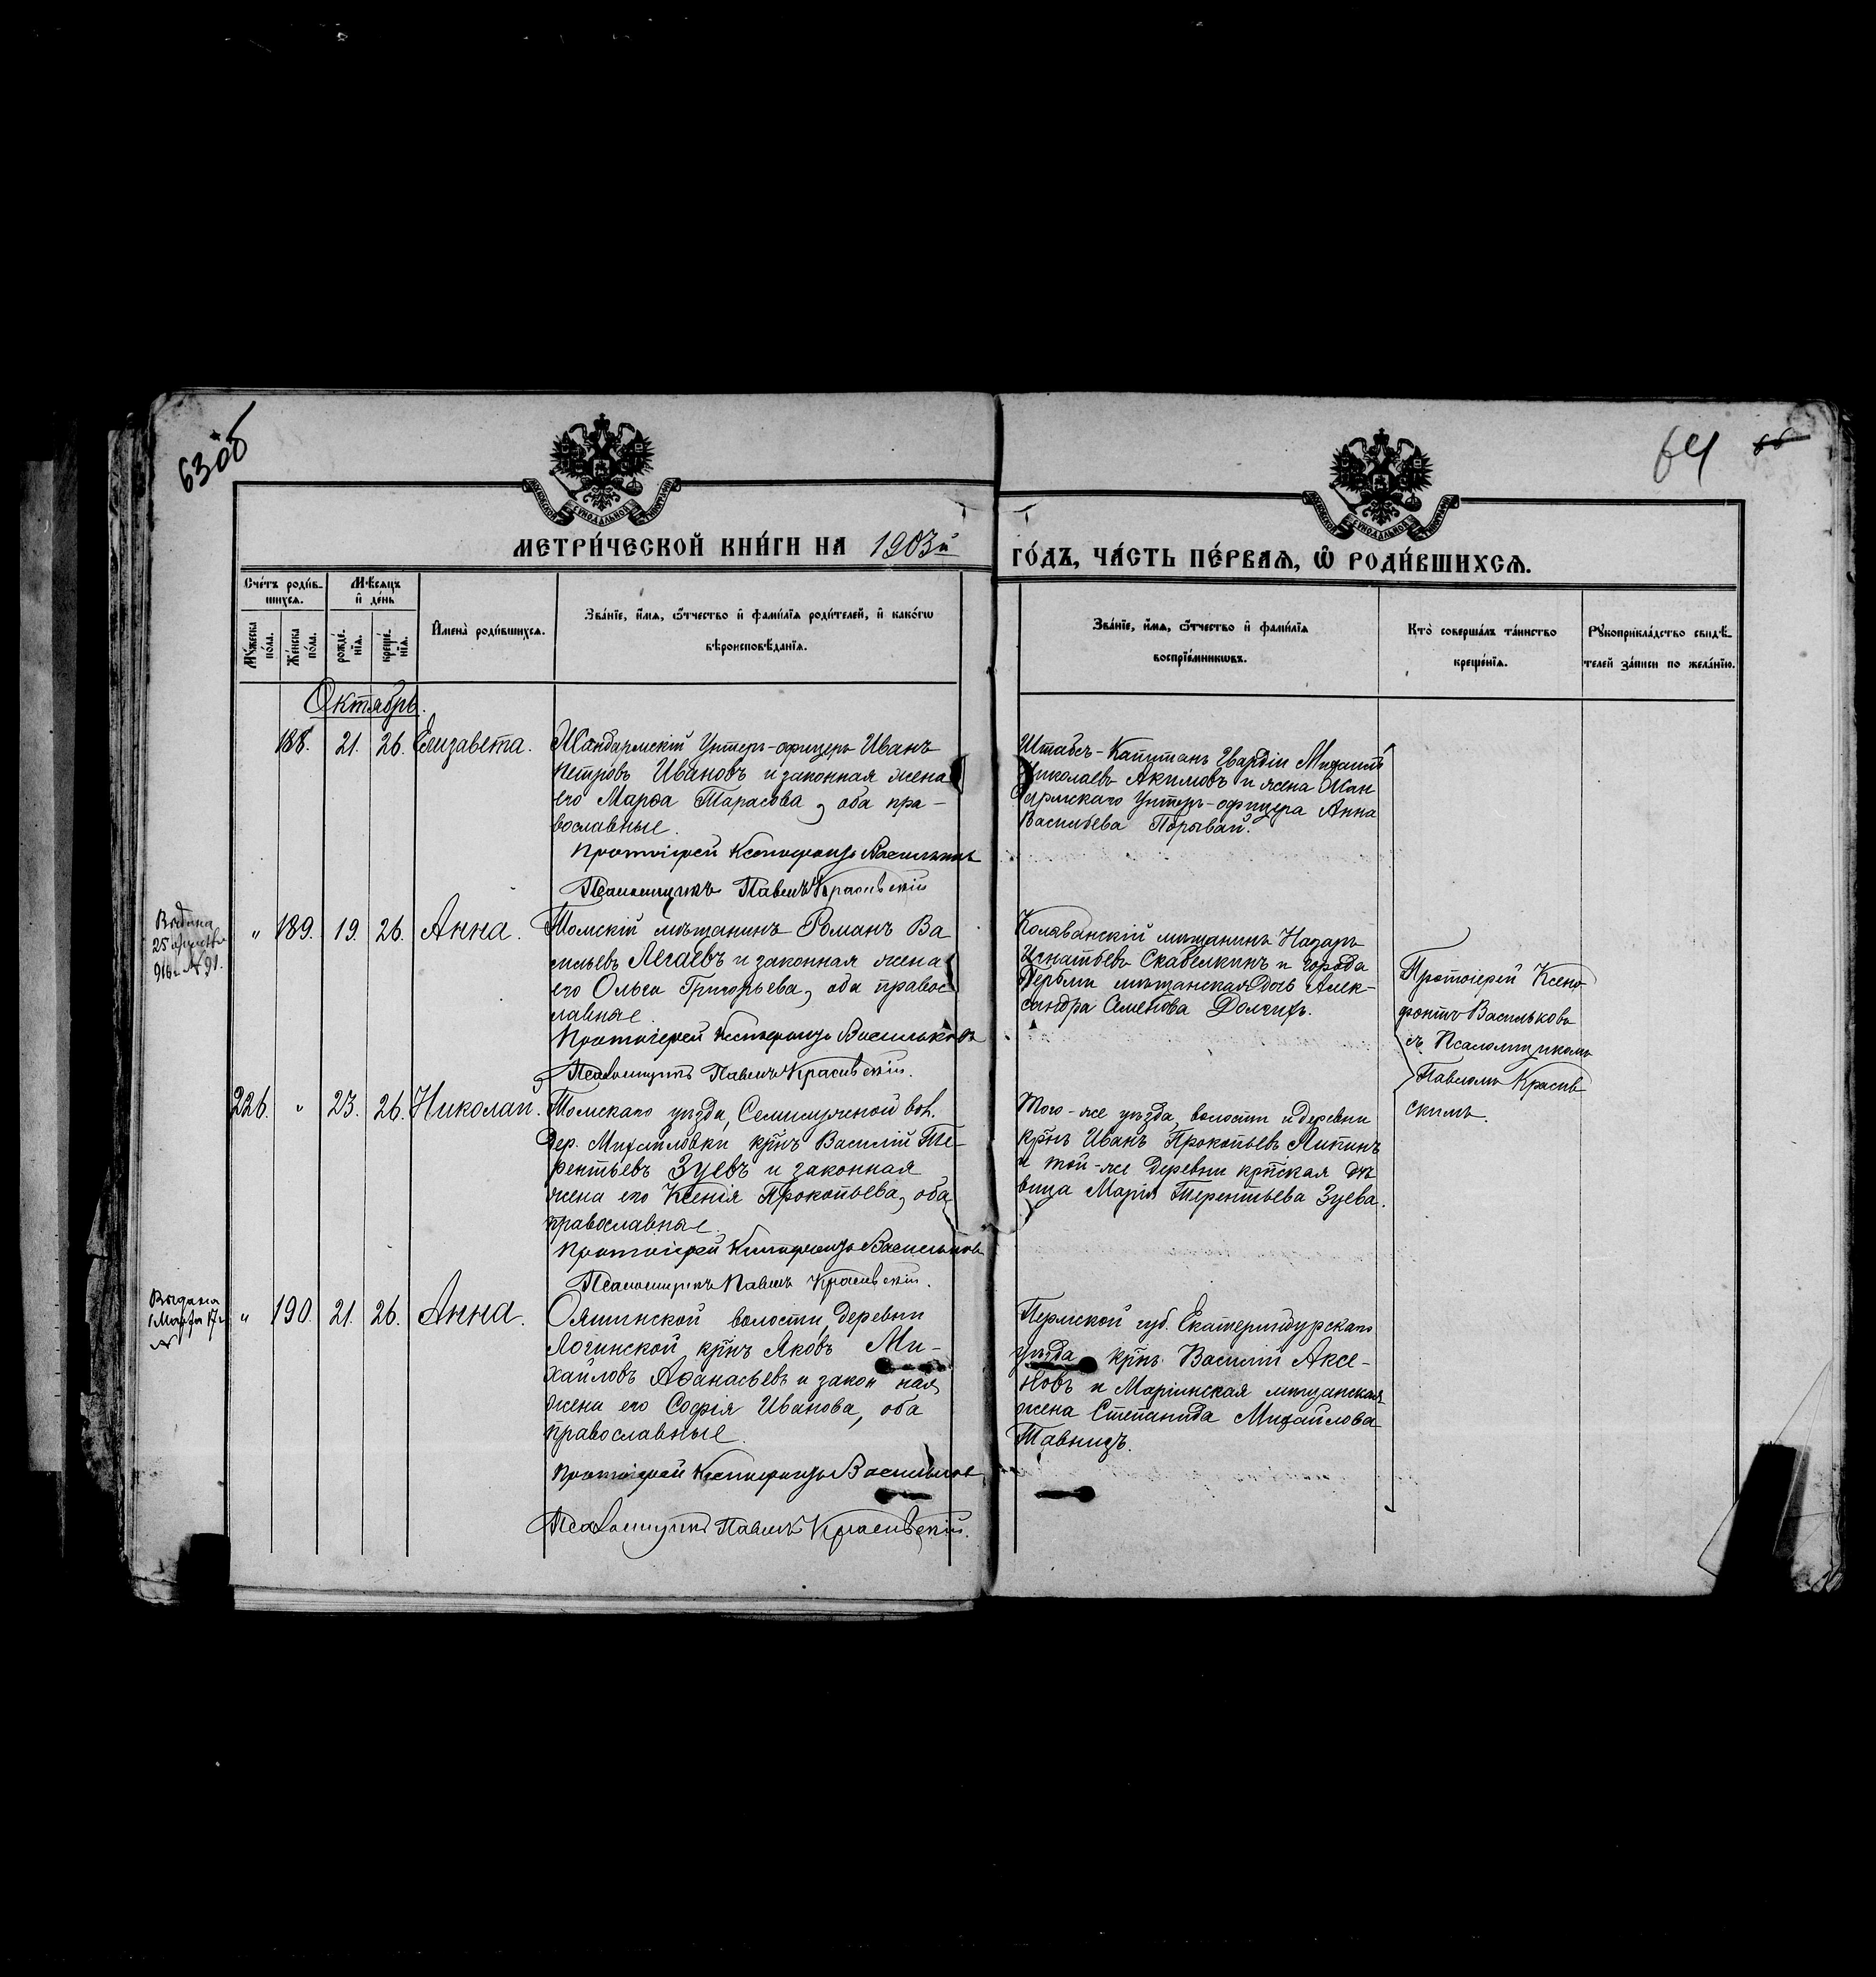 63об
64
МЕТРИ́ЧЕСКОЙ КНИ́ГИ НА 1903й
ГО́ДЪ, ЧА́СТЬ ПЕ́РВАѦ, Ѡ҆ РОДИ́ВШИХСѦ.
Сче́тъ роди́в-
шихсѧ.
Мꙋ́жеска
по́ла.
Же́нска
по́ла.
Мѣ́сѧцъ
и҆ де́нь
рожде́-
нїѧ.
креще́-
нїѧ.
И҆мена̀ роди́вшихсѧ.
Зва́нїе, и҆́мѧ, ѻ҆́тчество и҆ фами́лїѧ роди́телей, и҆ како́гѡ
вѣроисповѣ́данїѧ.
Зва́нїе, и҆́мѧ, ѻ҆́тчество и҆ фами́лїѧ
воспрїе́мникѡвъ.
Кто̀ соверша́лъ та́инство
креще́нїѧ.
Рꙋкоприкла́дство свидѣ́-
телей за́писи по жела́нїю.
Октябрь.
188. 21. 26. Елизавета.
Жандармскій Унтеръ-офицеръ Иванъ
Петровъ Ивановъ и законная жена
его Марѳа Тарасова, оба пра-
вославные.
Протоіерей Ксенофонтъ Васильковъ
Псаломщикъ Павелъ Красивскій
Штабсъ-Капитанъ Гвардіи Михаилъ
Николаевъ Акимовъ и жена Жан
дармскаго Унтеръ-офицера Анна
Васильева Порывай.
Выдана
25
916 г. № 91.
" 189. 19. 26. Анна.
Томскій мѣщанинъ Романъ Ва
сильевъ Легаевъ и законная жена
его Ольга Григорьева, оба правос
лавные.
Протоіерей Ксенофонтъ Васильковъ
Псаломщикъ Павелъ Красивскій.
Колыванскій мѣщанинъ Назаръ
Игнатьевъ Скабелкинъ и города
Перьми мѣщанская дочь Алек-
сандра Семенова Долгихъ.
Протоіерей Ксено
фонтъ Васильковъ
съ Псаломщикомъ
Павломъ Красив
скимъ.
226. " 23. 26. Николай.
Томскаго уѣзда, Семилужной вол.
дер. Михайловки крнъ Василій Те-
рентьевъ Зуевъ и законная
жена его Ксенія Прокопьева, оба
православные.
Протоіерей Ксенофонтъ Васильковъ
Псаломщикъ Павелъ Красивскій.
Того-же уѣзда, волости и деревни
крнъ Иванъ Прокопьевъ Липинъ
и той-же деревни крнская дѣ
вица Марія Терентьева Зуева.
Выдана
1 Марта 17 г.
№
" 190. 21. 26. Анна.
Ояшинской волости, деревни
Логинской крнъ Яковъ Ми-
хайловъ Аѳанасьевъ и законная
жена его Софія Иванова, оба
православные.
Протоіерей Ксенофонтъ Васильковъ
Псаломщикъ Павелъ Красивскій.
Пермской губ. Екатеринбурскаго
уѣзда крнъ Василій Аксе-
новъ и Маріинская мѣщанская
жена Степанида Михайлова